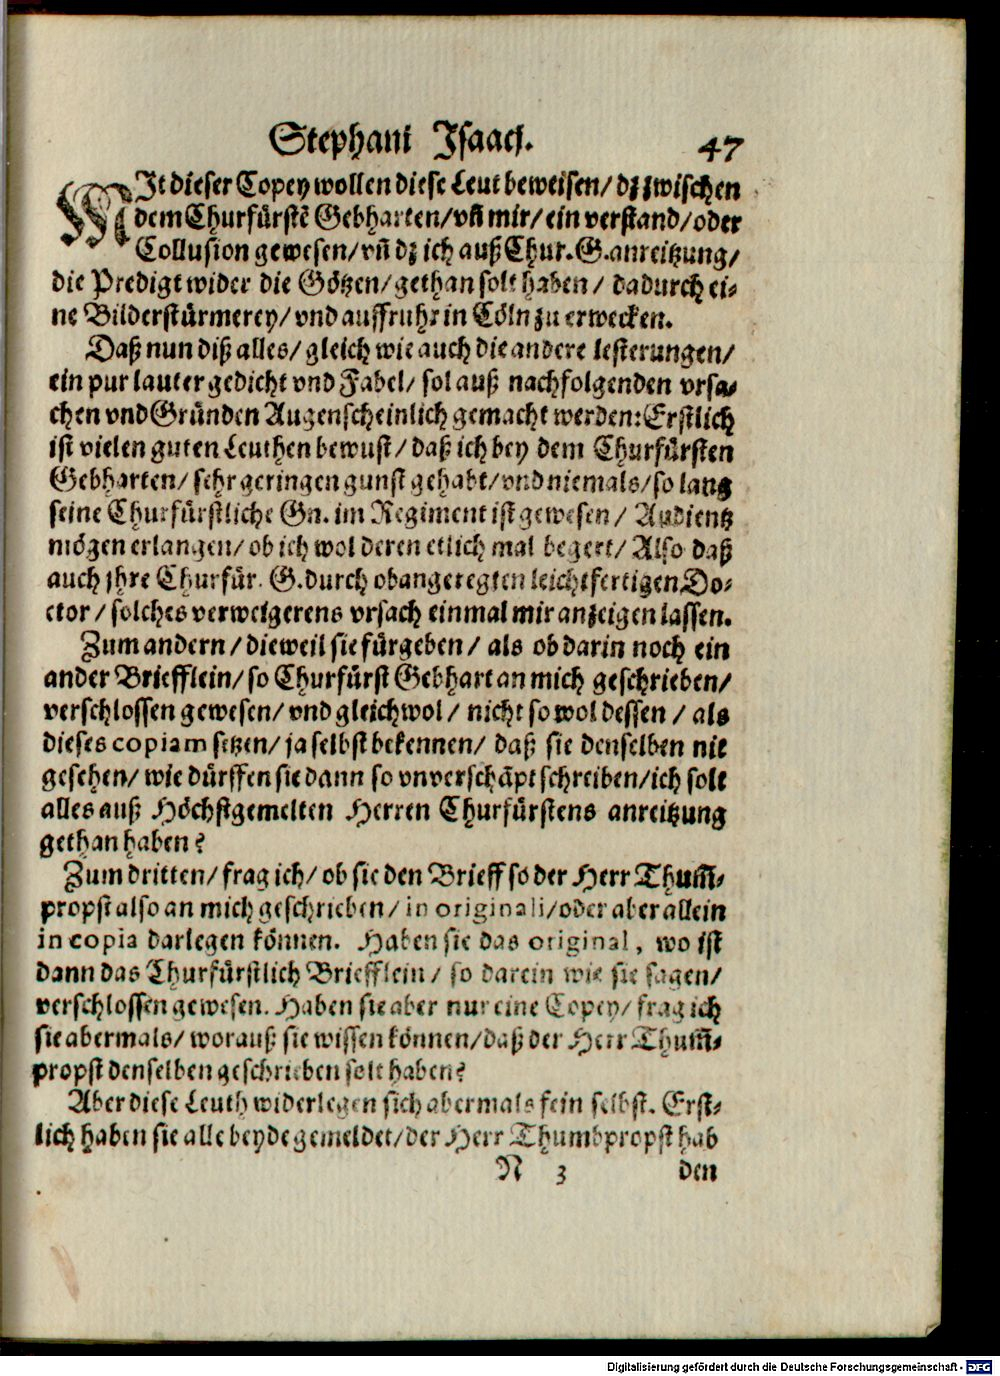 Stephani Isaaci. 47
MIt dieser Copey wollen diese Leut beweisen/ dz zwischen
dem Churfürstē Gebharten/ vn̄ mir/ ein verstand/ oder
Collusion gewesen/ vn̄ dz ich auß Chur. G. anreitzung/
die Predigt wider die Götzen/ gethan solt haben/ dadurch ei-
ne Bilderstürmerey/ vnd auffruhr in Cöln zu erwecken.
Daß nun diß alles/ gleich wie auch die andere lesterungen/
ein pur lauter gedicht vnd Fabel/ sol auß nachfolgenden vrsa-
chen vnd Gründen Augenscheinlich gemacht werden: Erstlich
ist vielen guten Leuthen bewust/ daß ich bey dem Churfürsten
Gebharten/ sehr geringen gunst gehabt/ vnd niemals/ so lang
seine Churfürstliche Gn. im Regiment ist gewesen/ Audientz
mögen erlangen/ ob ich wol deren etlich mal begert/ Also daß
auch jhre Churfür. G. durch obangeregten leichtfertigen Do-
ctor/ solches verweigerens vrsach einmal mir anzeigen lassen.
Zum andern/ dieweil sie fürgeben/ als ob darin noch ein
ander Briefflein/ so Churfürst Gebhart an mich geschrieben/
verschlossen gewesen/ vnd gleichwol/ nicht so wol dessen/ als
dieses copiam setzen/ ja selbst bekennen/ daß sie denselben nie
gesehen/ wie dürffen sie dann so vnverschāpt schreiben/ ich solt
alles auß Höchstgemelten Herren Churfürstens anreitzung
gethan haben?
Zum dritten/ frag ich/ ob sie den Brieff so der Herr Thum̄-
propst also an mich geschrieben/ in originali/ oder aber allein
in copia darlegen können. Haben sie das original, wo ist
dann das Churfürstlich Briefflein/ so darein wie sie sagen/
verschlossen gewesen. Haben sie aber nur eine Copey/ frag ich
sie abermals/ worauß sie wissen können/ daß der Herr Thum̄-
propst denselben geschrieben solt haben?
Aber diese Leuth widerlegen sich abermals fein selbst. Erst-
lich haben sie alle beyde gemeldet/ der Herr Thumbpropst hab
N 3 den
Digitalisierung gefördert durch die Deutsche Forschungsgemeinschaft - DFG